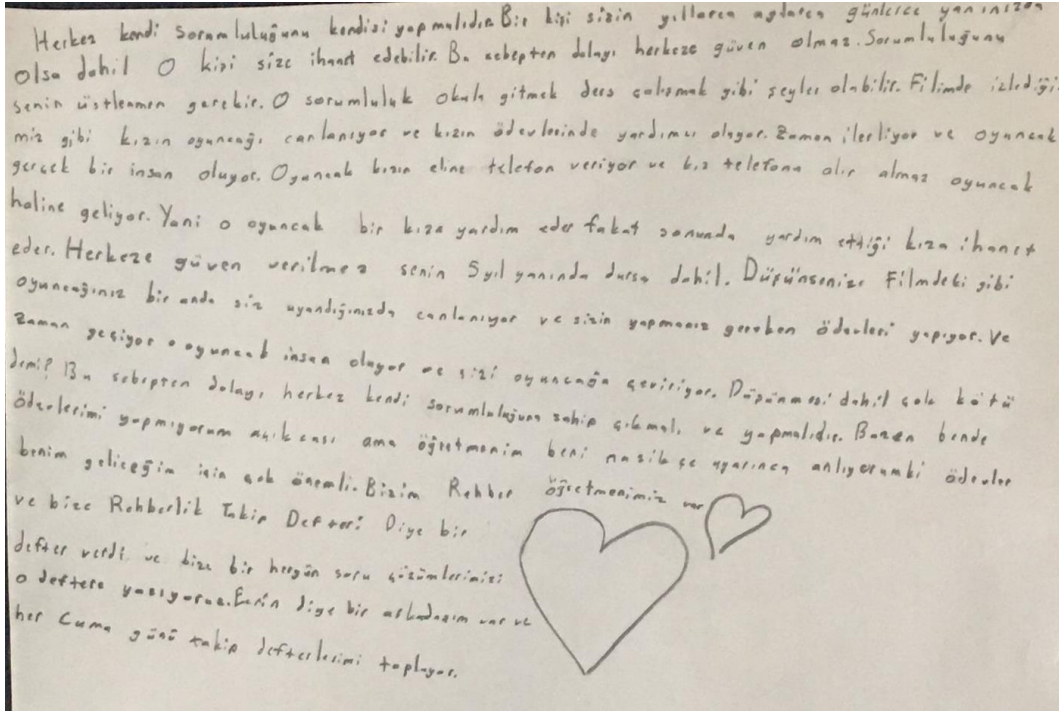 Herkez kendi Sorumluluğunu kendisi yapmalıdır. Bir kişi sizin yıllarca aylarca günlerce yanınızda
olsa dahil O kişi size ihanet edebilir. Bu sebepten dolayı herkeze güven olmaz. Sorumluluğunu
senin üstlenmen gerekir. O sorumluluk okula gitmek ders çalışmak gibi şeyler olabilir. Filimde izlediği-
miz gibi kızın oyuncağı canlanıyor ve kızın ödevlerinde yardımcı oluyor. Zaman ilerliyor ve oyuncak
gerçek bir insan oluyor. Oyuncak kızın eline telefon veriyor ve kız telefonu alır almaz oyuncak
haline geliyor. Yani o oyuncak bir kıza yardım eder fakat sonunda yardım ettiği kıza ihanet
eder. Herkeze güven verilmez senin 5 yıl yanında dursa dahil. Düşünsenize Filmdeki gibi
oyuncağınız bir anda siz uyandığınızda canlanıyor ve sizin yapmanız gereken ödevleri yapıyor. Ve
Zaman geçiyor o oyuncak insan oluyor ve sizi oyuncağa çeviriyor. Düşünmesi dahil çok kötü
demi? Bu sebepten dolayı herkez kendi sorumluluğuna sahip çıkmalı ve yapmalıdır. Bazen bende
ödevlerimi yapmıyorum açıkcası ama öğretmenim beni nasikçe uyarınca anlıyorumki ödevler
benim geliceğim için çok önemli. Bizim Rehber öğretmenimiz var
ve bize Rehberlik Takip Defteri Diye bir
defter verdi ve bize bir hergün soru çözümlerimizi
o deftere yazıyoruz. diye bir arkadaşım var ve
her Cuma günü takip defterlerimi topluyor.